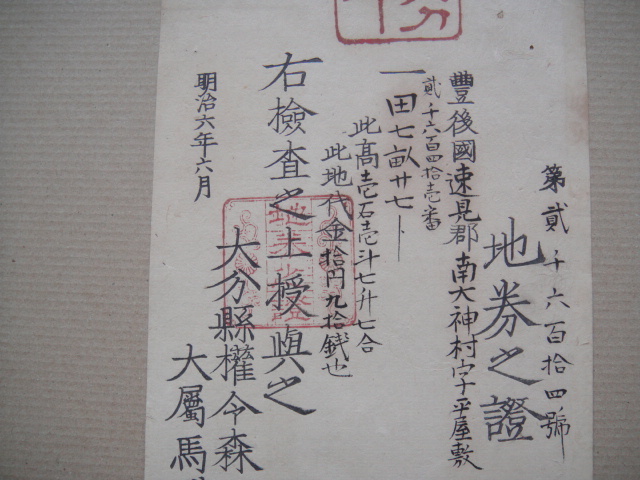 第貳千六百拾四號
地券之證
豐後國速見郡南大神村字平屋敷
貳千六百四拾壱番
一田七畝廿七卜
此高壱石壱斗七升七合
此地代金拾円九拾銭也
右檢査之上授與之
明治六年六月
大分縣權令森
大屬馬